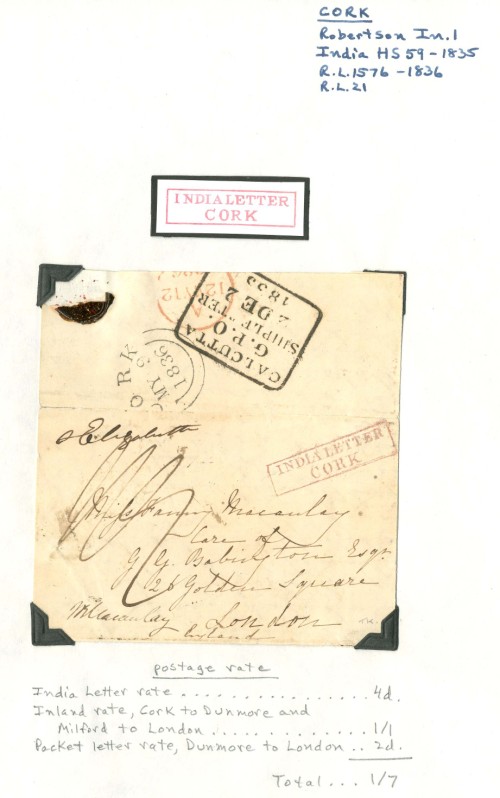 CORK
Robertson In.1
India HS 59-1835
R.L.1576-1836
R.L.21
INDIA LETTER
CORK
CALCUTTA
G.P.O.
SHIP LETTER
2 DE 2
1835
CORK
MY 9
1836
Elizabeth
INDIA LETTER
CORK
Miss Fanny Macaulay
Care of
G. G. Babington Esqr
26 Golden Square
London
England
Macaulay
postage rate
India Letter rate ................. 4d.
Inland rate, Cork to Dunmore and
Milford to London .............. 1/1
Packet letter rate, Dunmore to London .. 2d.
Total ... 1/7